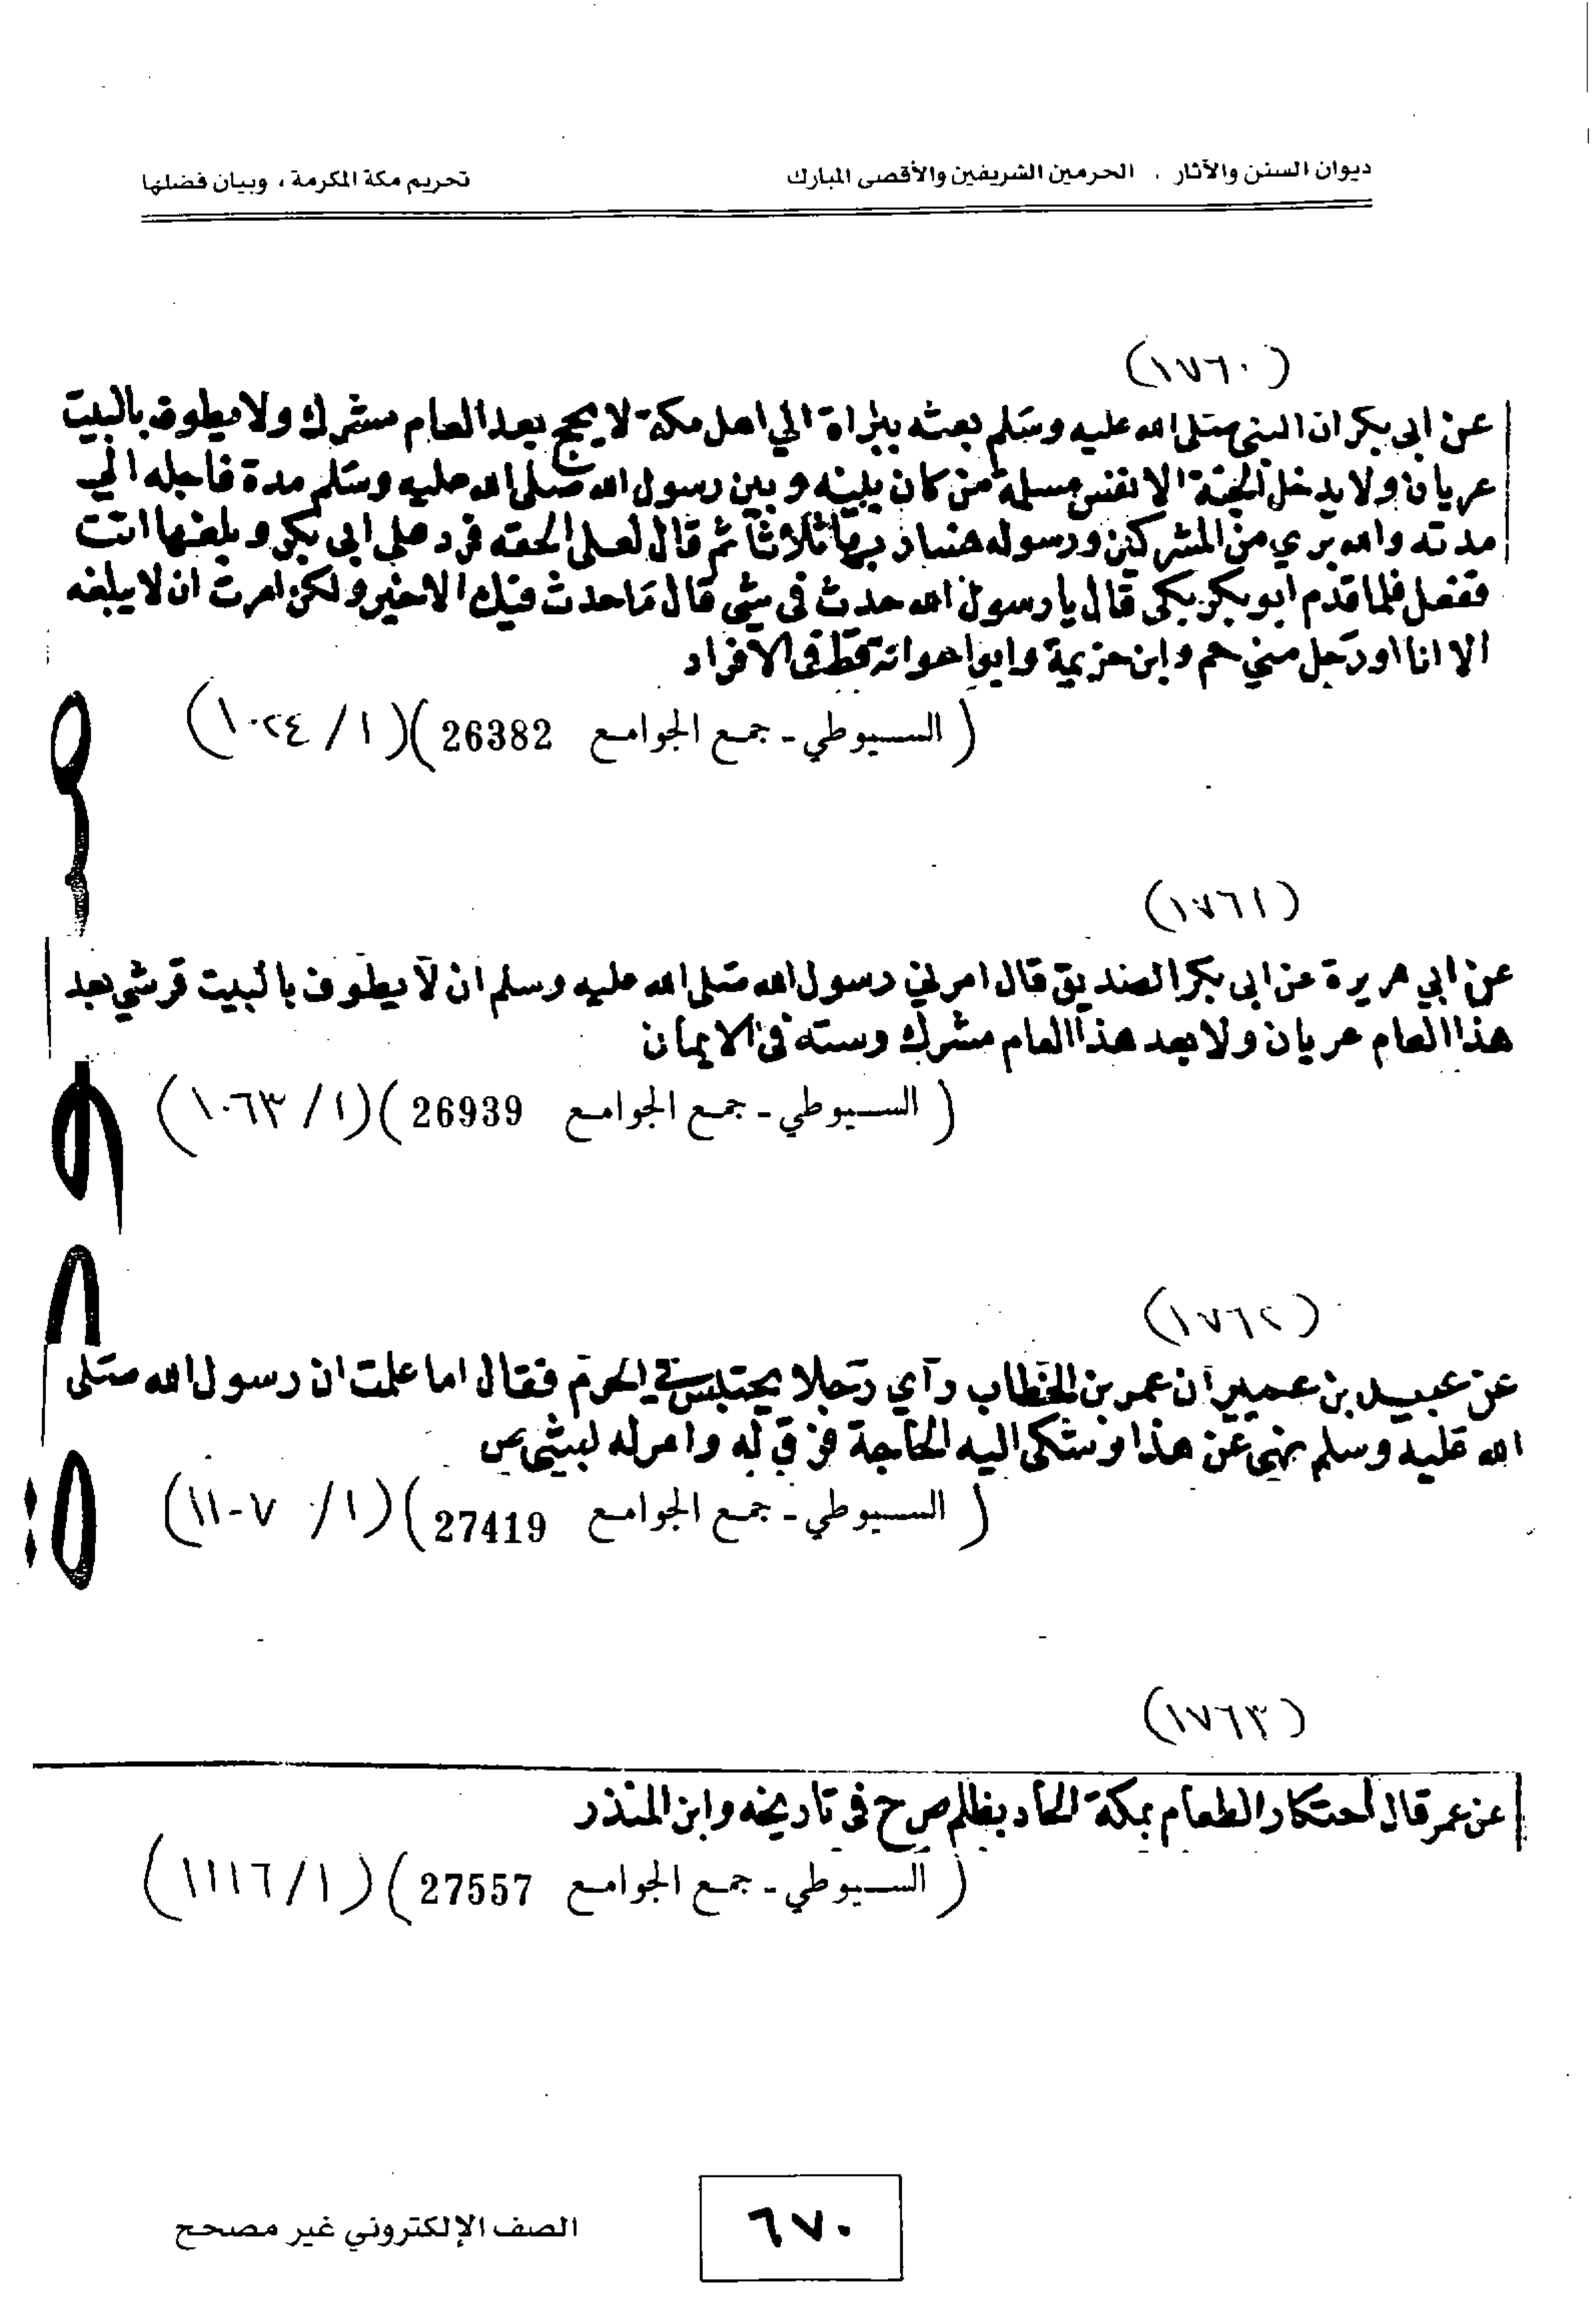 ديوان السنن والآثار . الحرمين الشريفين والأقصى المبارك
تحريم مكة المكرمة ، وبيان فضلها
(١٧٦٠)
عن ابى بكر ان النبي صلى الله عليه وسلم بعثه ببراة الي اهل مكة لا يحج بعد العام مشرك ولا يطوف بالبيت
عريان ولا يدخل الجنة الا نفس مسلمة من كان بينه وبين رسول الله صلى الله عليه وسلم مدة فاجله الي
مدته والله بري من المشركين ورسوله فسار بها ثلاثا ثم قال لعلى الحقه فرد على ابى بكر وبلغها انت
ففعل فلما قدم ابو بكر بكى قال يا رسول الله حدث فى شى قال ما حدث فيك الا خير ولكن امرت ان لا يبلغه
الا انا او رجل مني حم وابن خزيمة وابوا عوانه قط فى الافراد
( السيوطي - جمع الجوامع 26382 )(١ / ١٠٢٤)
(١٧٦١)
عن ابي هريرة عن ابى بكر الصديق قال امرني رسول الله صلى الله عليه وسلم ان لا يطوف بالبيت قرشي بعد
هذا العام عريان ولا بعد هذا العام مشرك وسته فى الايمان
( السيوطي - جمع الجوامع 26939 )(١ / ١٠٦٣)
(١٧٦٢)
عن عبيد بن عمير ان عمر بن الخطاب رآي رجلا يحتبس في الحرم فقال اما علمت ان رسول الله صلى
الله عليه وسلم نهى عن هذا وشكى اليه الحاجة فرق له وامر له بشى ص
( السيوطي - جمع الجوامع 27419 )(١ / ١١٠٧)
(١٧٦٣)
عن عمر قال احتكار الطعام بمكة الحاد بظلم ص ح فى تاريخه وابن المنذر
( السيوطي - جمع الجوامع 27557 )(١ / ١١١٦)
٦٧٠
الصف الإلكتروني غير مصحح